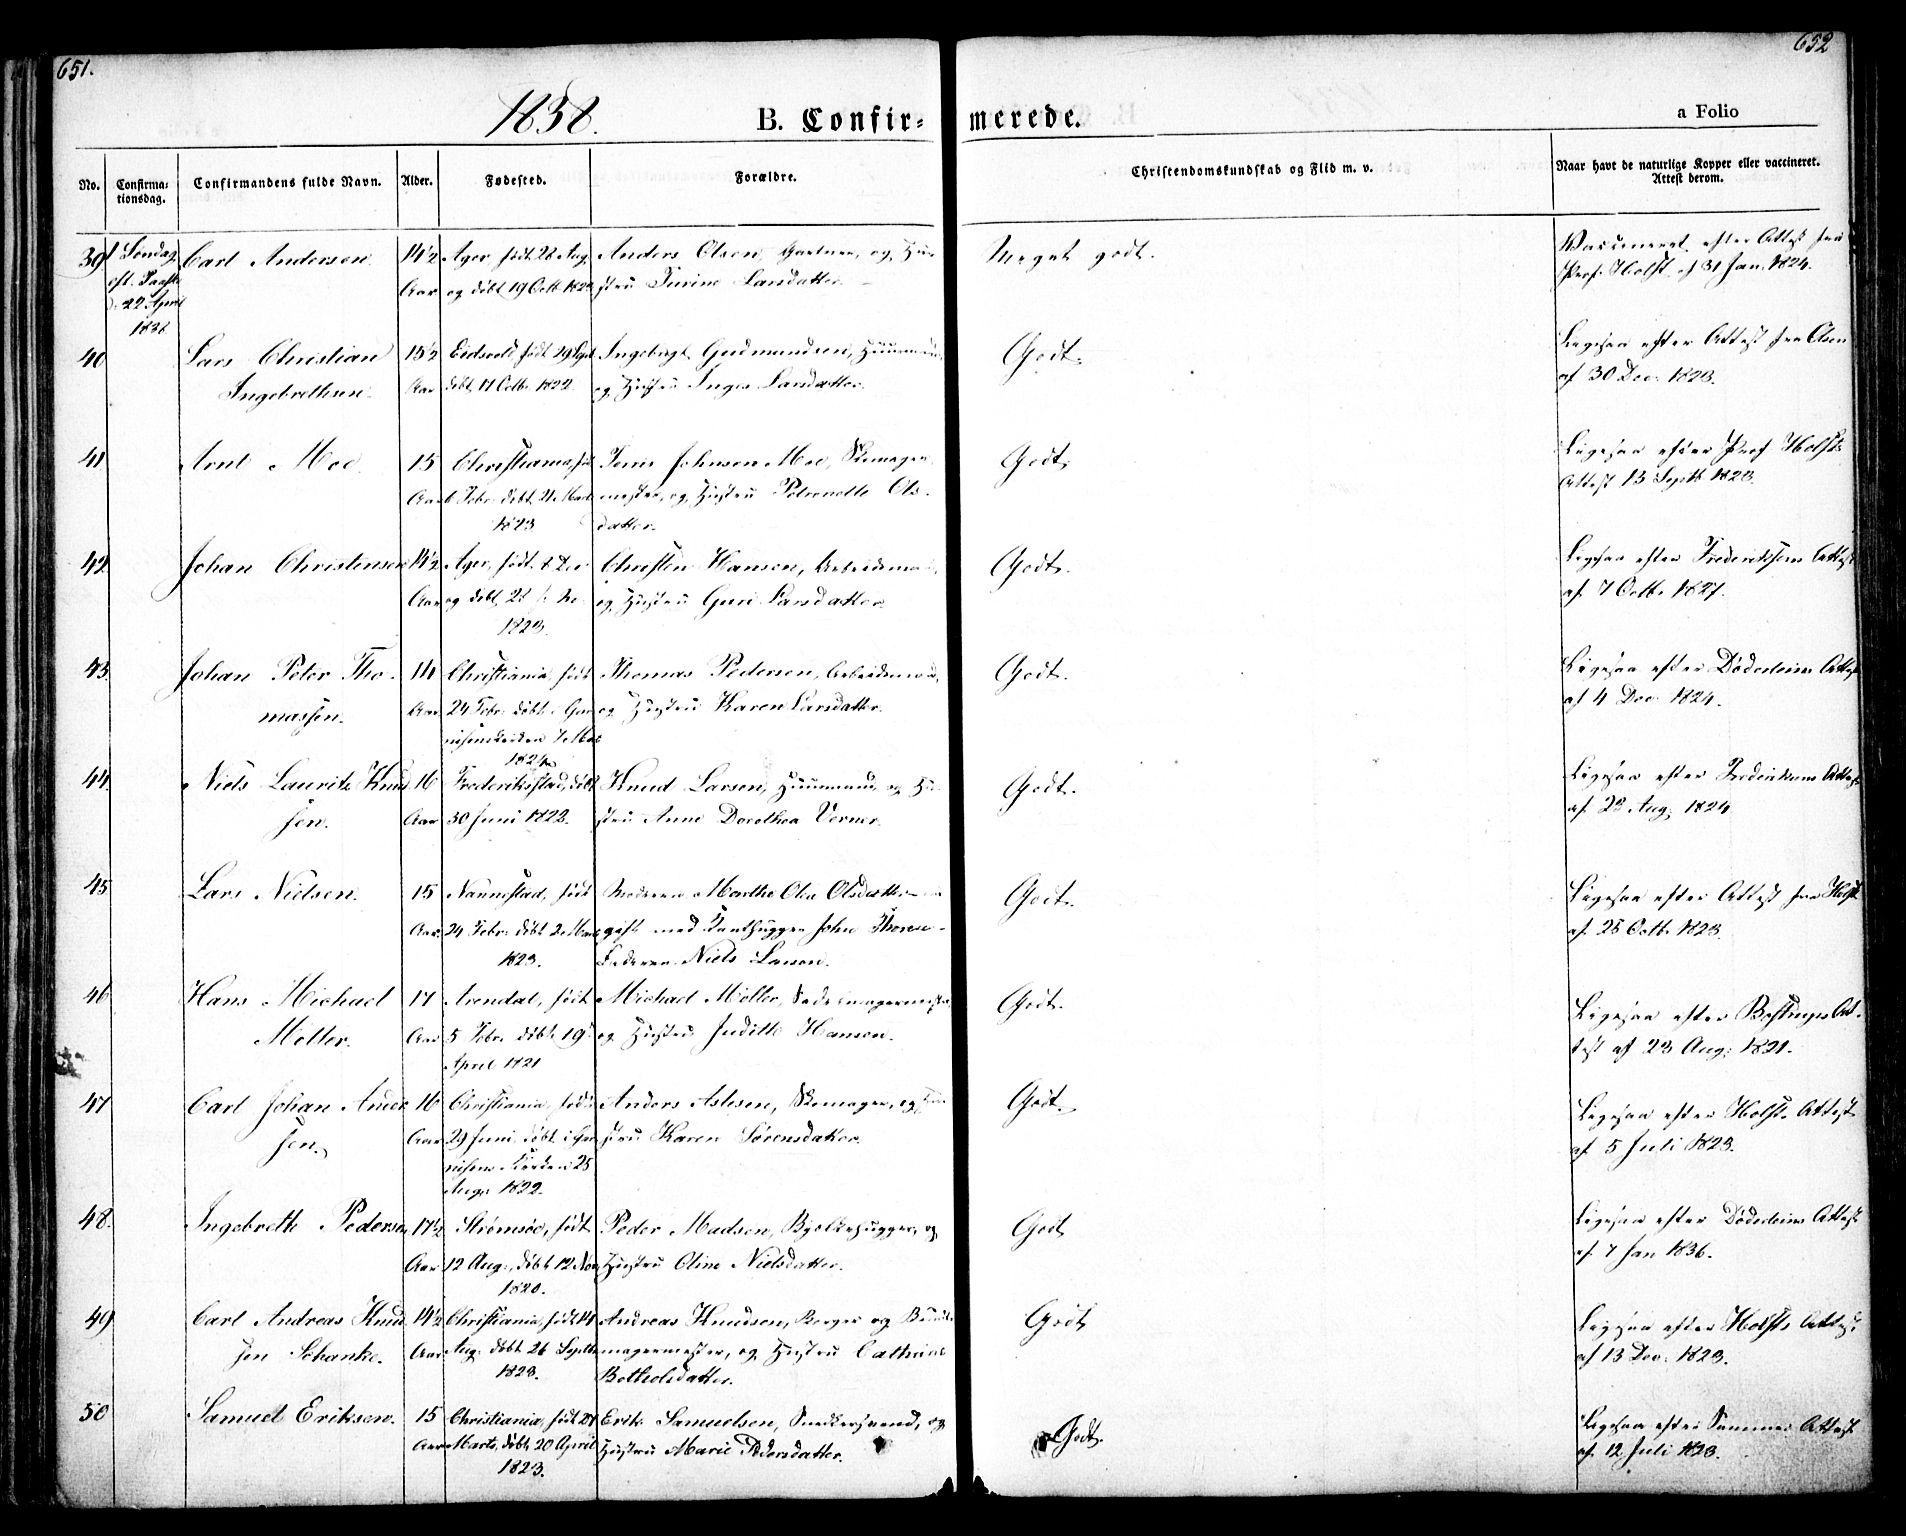 651.
652
1838.
B. Confir-
merede.
a Folio
No.
Confirma-
tionsdag.
Confirmandens fulde Navn.
Alder.
Fødested.
Forældre.
Christendomskundskab og Flid m. v.
Naar havt de naturlige Kopper eller vaccineret.
Attest derom.
39
1 Søndag
eft. Paaske
22 April
1838
Carl Andersen
14½
Aar
Ager født 28 Aug
og døbt 19 Octb
Anders Olsen, Gartner, og Hu-
stru Larsdatter
Meget godt.
Vaccineret efter Attest fra
Prof. Holst af 31 Jan. 1824.
40
Lars Christian
Ingebrethsen.
15½
Aar
Eidsvold født 29 Sept
døbt 17 Octb. 1822.
Ingebregt Gudmundsen, Huusmand,
og Hustru Inger Larsdatter.
Godt.
Ligesaa efter Attest fra Olsen
af 30 Dec. 1823.
41
Arnt Moe
15
Aar
Christiania, født
6 Febr. døbt 21 Marts
1823
Johnsen Moe, Skomager-
mester, og Hustru Petronelle Ols-
datter.
Godt.
Ligesaa efter Prof Holsts
Attest 13 Septb 1823.
42
Johan Christensen
14½
Aar
Ager, født
og døbt 28
1823.
Christen Hansen, Arbeidsmand,
og Hustru Guri Larsdatter
Godt.
Ligesaa efter Attest
af 7 Octb. 1827.
43
Johan Peter Tho-
massen.
14
Aar
Christiania, født
24 Febr. døbt i Gar-
nisonskirken 7 Mai
1824
Thomas Pedersen, Arbeidsmand,
og Hustru Karen Larsdatter.
Godt.
Ligesaa efter Døderleins Attest
af 4 Dec. 1824.
44
Niels Lauritz Knud
sen.
16
Aar
Frederiksstad, døbt
30 Juni 1822.
Knud Larsen, Huusmand, og Hu-
stru Anne Dorothea Verner.
Godt.
Ligesaa efter Attest
af 23 Aug. 1824
45
Lars Nielsen.
15
Aar
Nannestad, født
24 Febr. døbt 2 Marts
1823.
Moderen Marthe Olea Olsdatter
gift med John
Faderen Niels Larsen.
Godt.
Ligesaa efter Attest fra Holst
af 25 Octb. 1823.
46
Hans Michael
Møller.
17
Aar
Arendal, født
5 Febr. døbt 19
April 1821
Michael Møller, Sadelmagermester,
og Hustru Judith Hansen.
Godt.
Ligesaa efter At-
test af 23 Aug. 1821.
47
Carl Johan Ander
sen.
16
Aar
Christiania, født
29 Juni døbt i Gar
nisons Kirken 25
Aug. 1822.
Anders Aslesen, Skomager, og Hu-
stru Karen Sørensdatter.
Godt.
Ligesaa efter Holsts Attest
af 5 Juli 1823.
48.
Ingebreth Pedersen
17½
Aar
Strømsøe, født
12 Aug., døbt 12 Nov
1820.
Peder Madsen, Bjelkehugger, og
Hustru Oline Nielsdatter.
Godt
Ligesaa efter Døderleins Attest
af 7 Jan 1836.
49
Carl Andreas Knud
sen Schanke.
14½
Aar
Christiania, født 14
Aug. døbt 26 Septb
1823.
Andreas Knudsen, Borger og
magermester, og Hustru Cathrine
Botholsdatter.
Godt
Ligesaa efter Holsts Attest
af 13 Dec. 1823.
50
Samuel Eriksen.
15
Aar
Christiania, født 27
Marts, døbt 20 April
1823.
Erik Samuelsen, Snedkersvend, og
Hustru Marie Pedersdatter.
Godt.
Ligesaa efter Attest
af 12 Juli 1823.